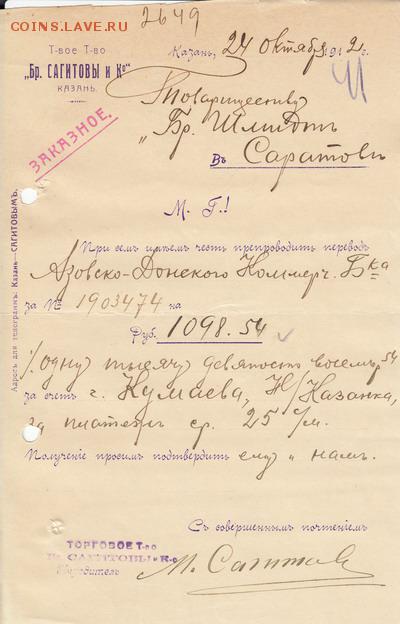 COINS.LAVE.RU
2649
Т-вое Т-во
„Бр. САГИТОВЫ и К°“
КАЗАНЬ.
Казань, 24 октября 1912 г.
41
ЗАКАЗНОЕ.
Товариществу
„Бр. Шмидтъ
Въ Саратовъ
М. Г.!
Адресъ для телеграммъ: Казань—САГИТОВЫМЪ.
При семъ имѣемъ честь препроводить переводъ
Азовско-Донского Коммерч. Бка
за № 1903474 на
Руб. 1098.54
/одну тысячу девяносто восемь 54
за счетъ г. Кумаева, Н/Казанка,
за платежъ ср. 25 с/м.
Полученіе просимъ подтвердить ему и намъ.
Съ совершеннымъ почтеніемъ
ТОРГОВОЕ Т-во
Бр. САГИТОВЫ и К-о
Учредитель
М. Сагитов